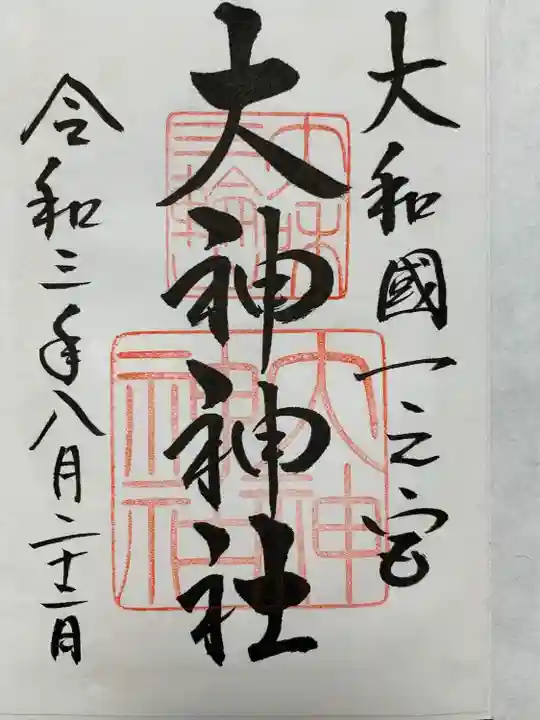 大和國一之宮
大神神社
令和三年八月二十二日
大神神社